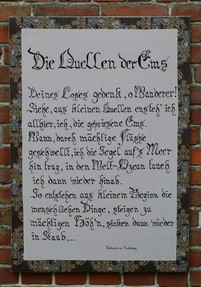 Die Quellen der Ems
Deines Loses gedenk, o Wanderer!
Siehe, aus kleinen Quellen ensteh' ich
allhier, ich, die gepriesene Ems.
Wann, durch mächtige Flüsse
geschwellt, ich die Segel auf's Meer
hin trug, in den Welt-Ozean tauch
ich dann wieder hinab.
So entstehen aus kleinem Beginn die
menschlichen Dinge, steigen zu
mächtigen Höh'n, sinken dann wieder
in Staub...